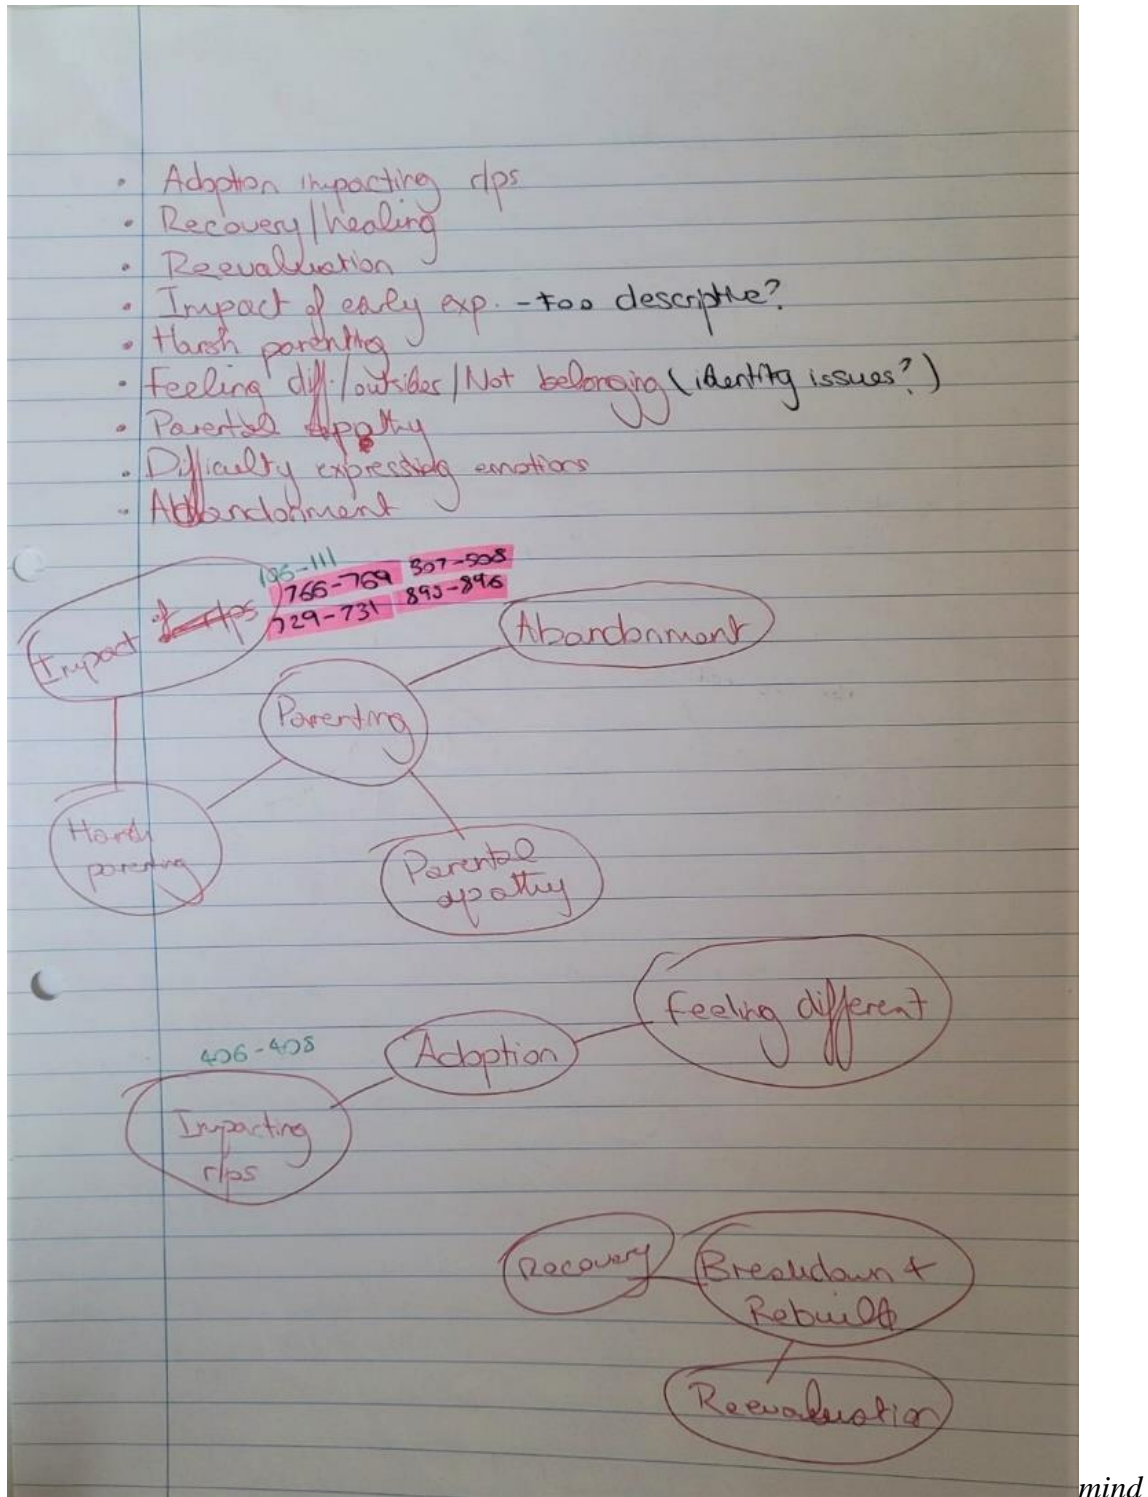 • Adoption impacting r/ps
• Recovery/healing
• Reevaluation
• Impact of early exp. - too descriptive?
• Harsh parenting
• Feeling diff./outsider/Not belonging (identity issues?)
• Parental apathy
• Difficulty expressing emotions
• Abandonment
766-769 507-508
729-731 893-896
Impact
Abandonment
Parenting
Harsh
parenting
Parental
apathy
Feeling different
406-408
Adoption
Impacting
r/ps
Recovery
Breakdown +
Rebuild
Reevaluation
mind